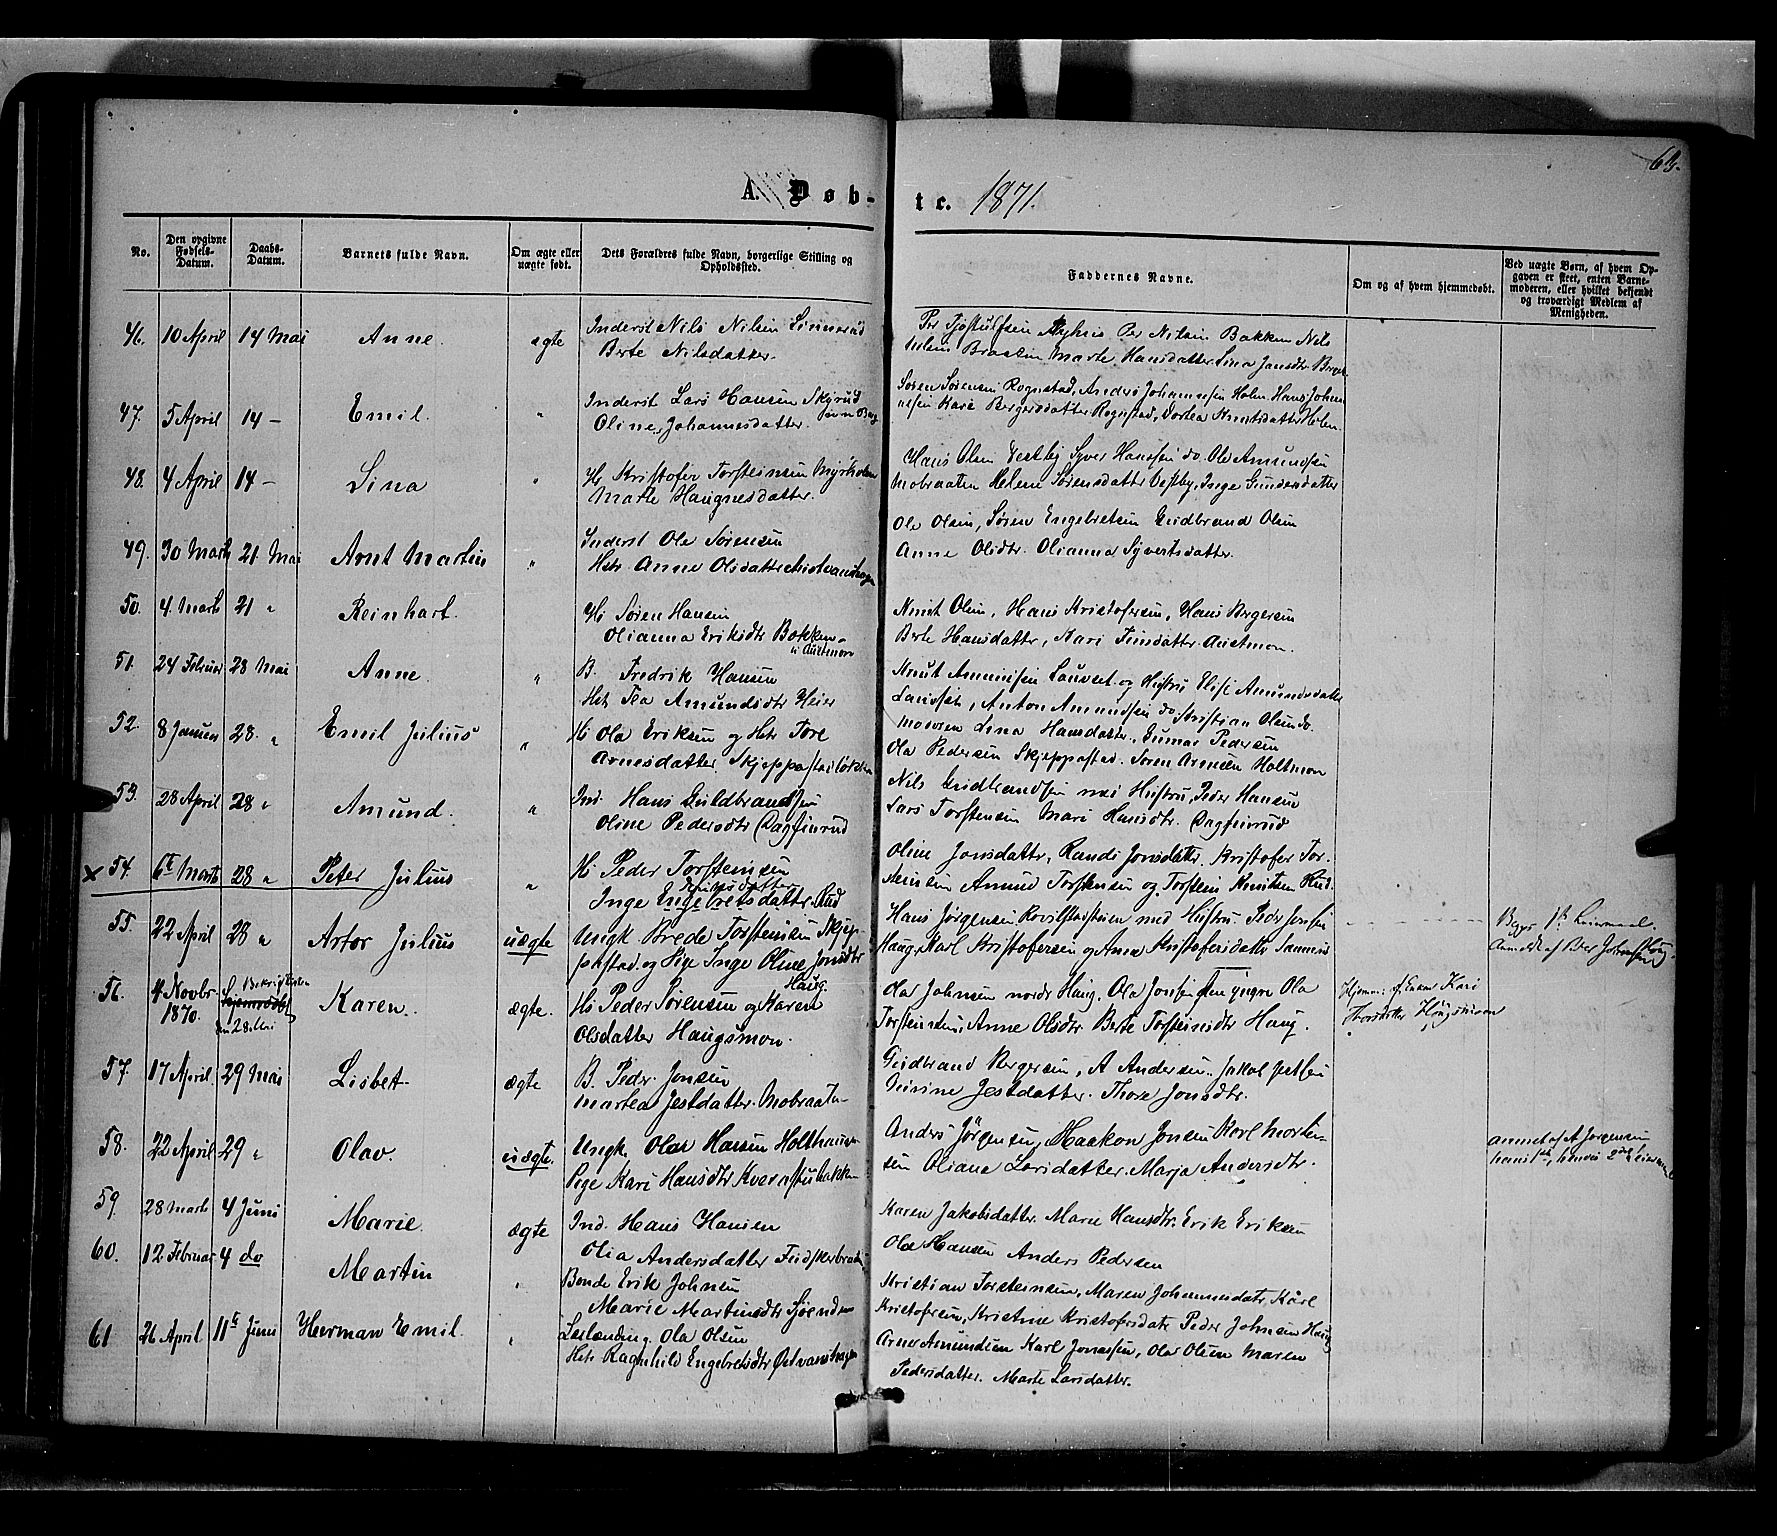 63.
A. Døb- te. 1871.
No.
Den opgivne Fødsels-Datum.
Daabs-Datum.
Barnets fulde Navn.
Om ægte eller uægte født.
Dets Forældres fulde Navn, borgerlige Stilling og Opholdssted.
Faddernes Navne.
Om og af hvem hjemmedøbt.
Ved uægte Børn, af hvem Opgaven er skeet, enten Barnemoderen, eller hvilket bekjendt og troværdigt Medlem af Menigheden.
46. 10 April 14 Mai Anne. ægte Inderst Nils Nilsen
Berte Nilsdatter.
Per Nilsen Bakken Nils
Nilsen Braaten Marte Hansdatter. Lina Jansdtr
47. 5 April 14 – Emil. " Inderst Lars Hansen
Oline Johannesdatter.
Søren Sørensen Rognstad, Anders Johannesen Holm. Hans Johan
nesen Kari Bergersdatter Rognstad, Dortea Knutsdatter Holm.
48. 4 April 14 – Lina " Hr Kristofer Torsteinsen Myrholm
Marte Haagnesdatter.
Hans Olsen Vestby Syver Hanssen do. Ole Amundsen
Mobraaten Helene Sørensdatter Vestby, Inge Gundersdatter
49. 30 Marts 21 Mai Arnt Martin " Inderst Ole Sørensen
Hstr. Anne Olsdatter
Ole Olsen, Søren Engebretsen Gudbrand Olsen
Anne Olsdtr. Olianna Syvertsdatter.
50. 4. Marts 21 " Reinhart. Hr Søren Hansen
Olianna Eriksdtr Bakken
u Austmoen
Knut Olsen, Hans Kristofersen, Hans Bergersen
Berte Hansdatter, Kari Austmoen.
51. 24 Februar 28 Mai Anne. " B. Fredrik Hansen
Hstr Tea Amundsdtr Heier
Knut Amundsen og Hustru Elise Amundsdatter
Anton Amundsen do. Kristian Olsen do.
52. 8 Januar 28. " Emil Julius " Hr Ola Eriksen og Hstr Tore
Arnesdatter. Skjeppestadløkken
Moderen Lina Hansdatter, Gunar Pedersen
Ola Pedersen Skjeppestad. Søren Arnesen Holtmon
53. 28 April 28 " Amund. " Ind. Hans Guldbrandsen
Oline Pedersdtr Dagfinrud
Nils Gudbrandsen med Hustru, Peder Hansen
Lars Torstensen Mari Hansdtr. Dagfinrud
x 54. 6te Marts 28 " Peter Julius " Hr Peder Torsteinsen
Knutsdatter
Inge Engebretsdatter Rud
Oline Jonsdatter, Randi Jonsdattr. Kristofer Tor-
steinsen Amund Torstensen og Torstein Knutsen Rud.
55. 22 April 28 " Artor Julius uægte Ungk Brede Torsteinsen Skjep-
pestad. og Pige Inge Oline Jonsdtr
Haug.
Hans Jørgensen med Hustru. Peder Jonsen
Haug, Karl Kristofersen og Anna Kristofersdatter
Begges 1ste Leiermaal.
Anmeldt af
56. 4 Novbr. 1870. den 28 Mai Karen. ægte. Hr Peder Sørensen og Karen
Olsdatter Haugsmoen.
Ola Johnsen nordr Haug. Ola Jonsen den yngre Ola
Torsteinsen, Anne Olsdtr Berte Torsteinsdtr Haug.
Hjemmed. af Enken Kari
57. 17 April. 29 Mai Lisbet. ægte B. Pedr. Jonsen
Martea Jestdatter. Mobraaten
Gudbrand Bergersen, A Andersen. Jakob
Jestdatter. Thore Jonsdtr.
58. 22 April 29 " Olav. uægte. Ungk Olav Hansen
Pige Kari Hansdtr Kvernstubakken
Anders Jørgensen, Haakon Jonsen Karl Morten-
sen Oliane Larsdatter. Marja Andersdtr.
anmeldt af A Jørgensen
hans 1ste, hendes 2det leiermaal
59. 28 Marts 4 Juni Marie. ægte Ind. Hans Hansen
Olia Andersdatter
Karen Jakobsdatter. Marie Hansdtr. Erik Eriksen
Ola Hansen Anders Pedersen
60. 12 Februar 4 do Martin " Bonde Erik Johnsen
Marie Martinsdtr
Kristian Torsteinsen, Maren Johannesdatr, Karl
Kristofersen, Kristine Kristofersdatr Peder Johnsen Haug
61 26 April. 11te Juni Herman Emil. " Leilænding. Ola Olsen
Hstr Ragnhild Engebretsdtr
Arne Amundsen Karl Jonassen, Olar Olsen Maren
Pedersdatter. Marte Larsdatter.